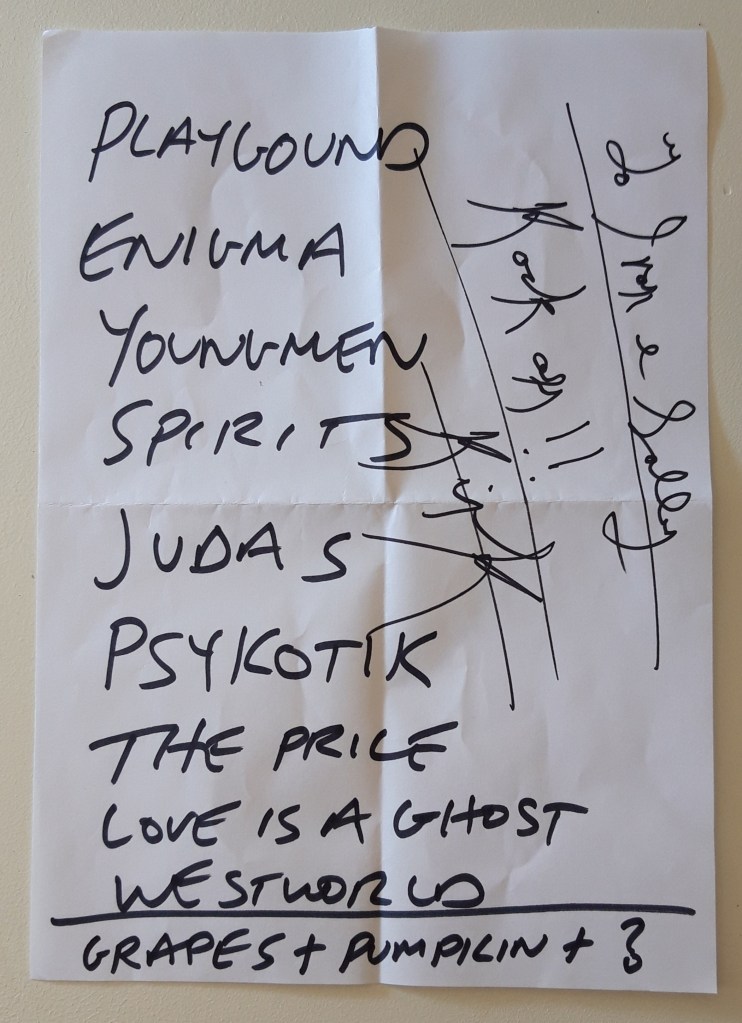 PLAYGOUND
ENIGMA
YOUNGMEN
SPIRITS
JUDAS
PSYKOTIK
THE PRICE
LOVE IS A GHOST
WESTWORLD
GRAPES + PUMPKIN + 3
To & Sally
Rock on!!
Kirk